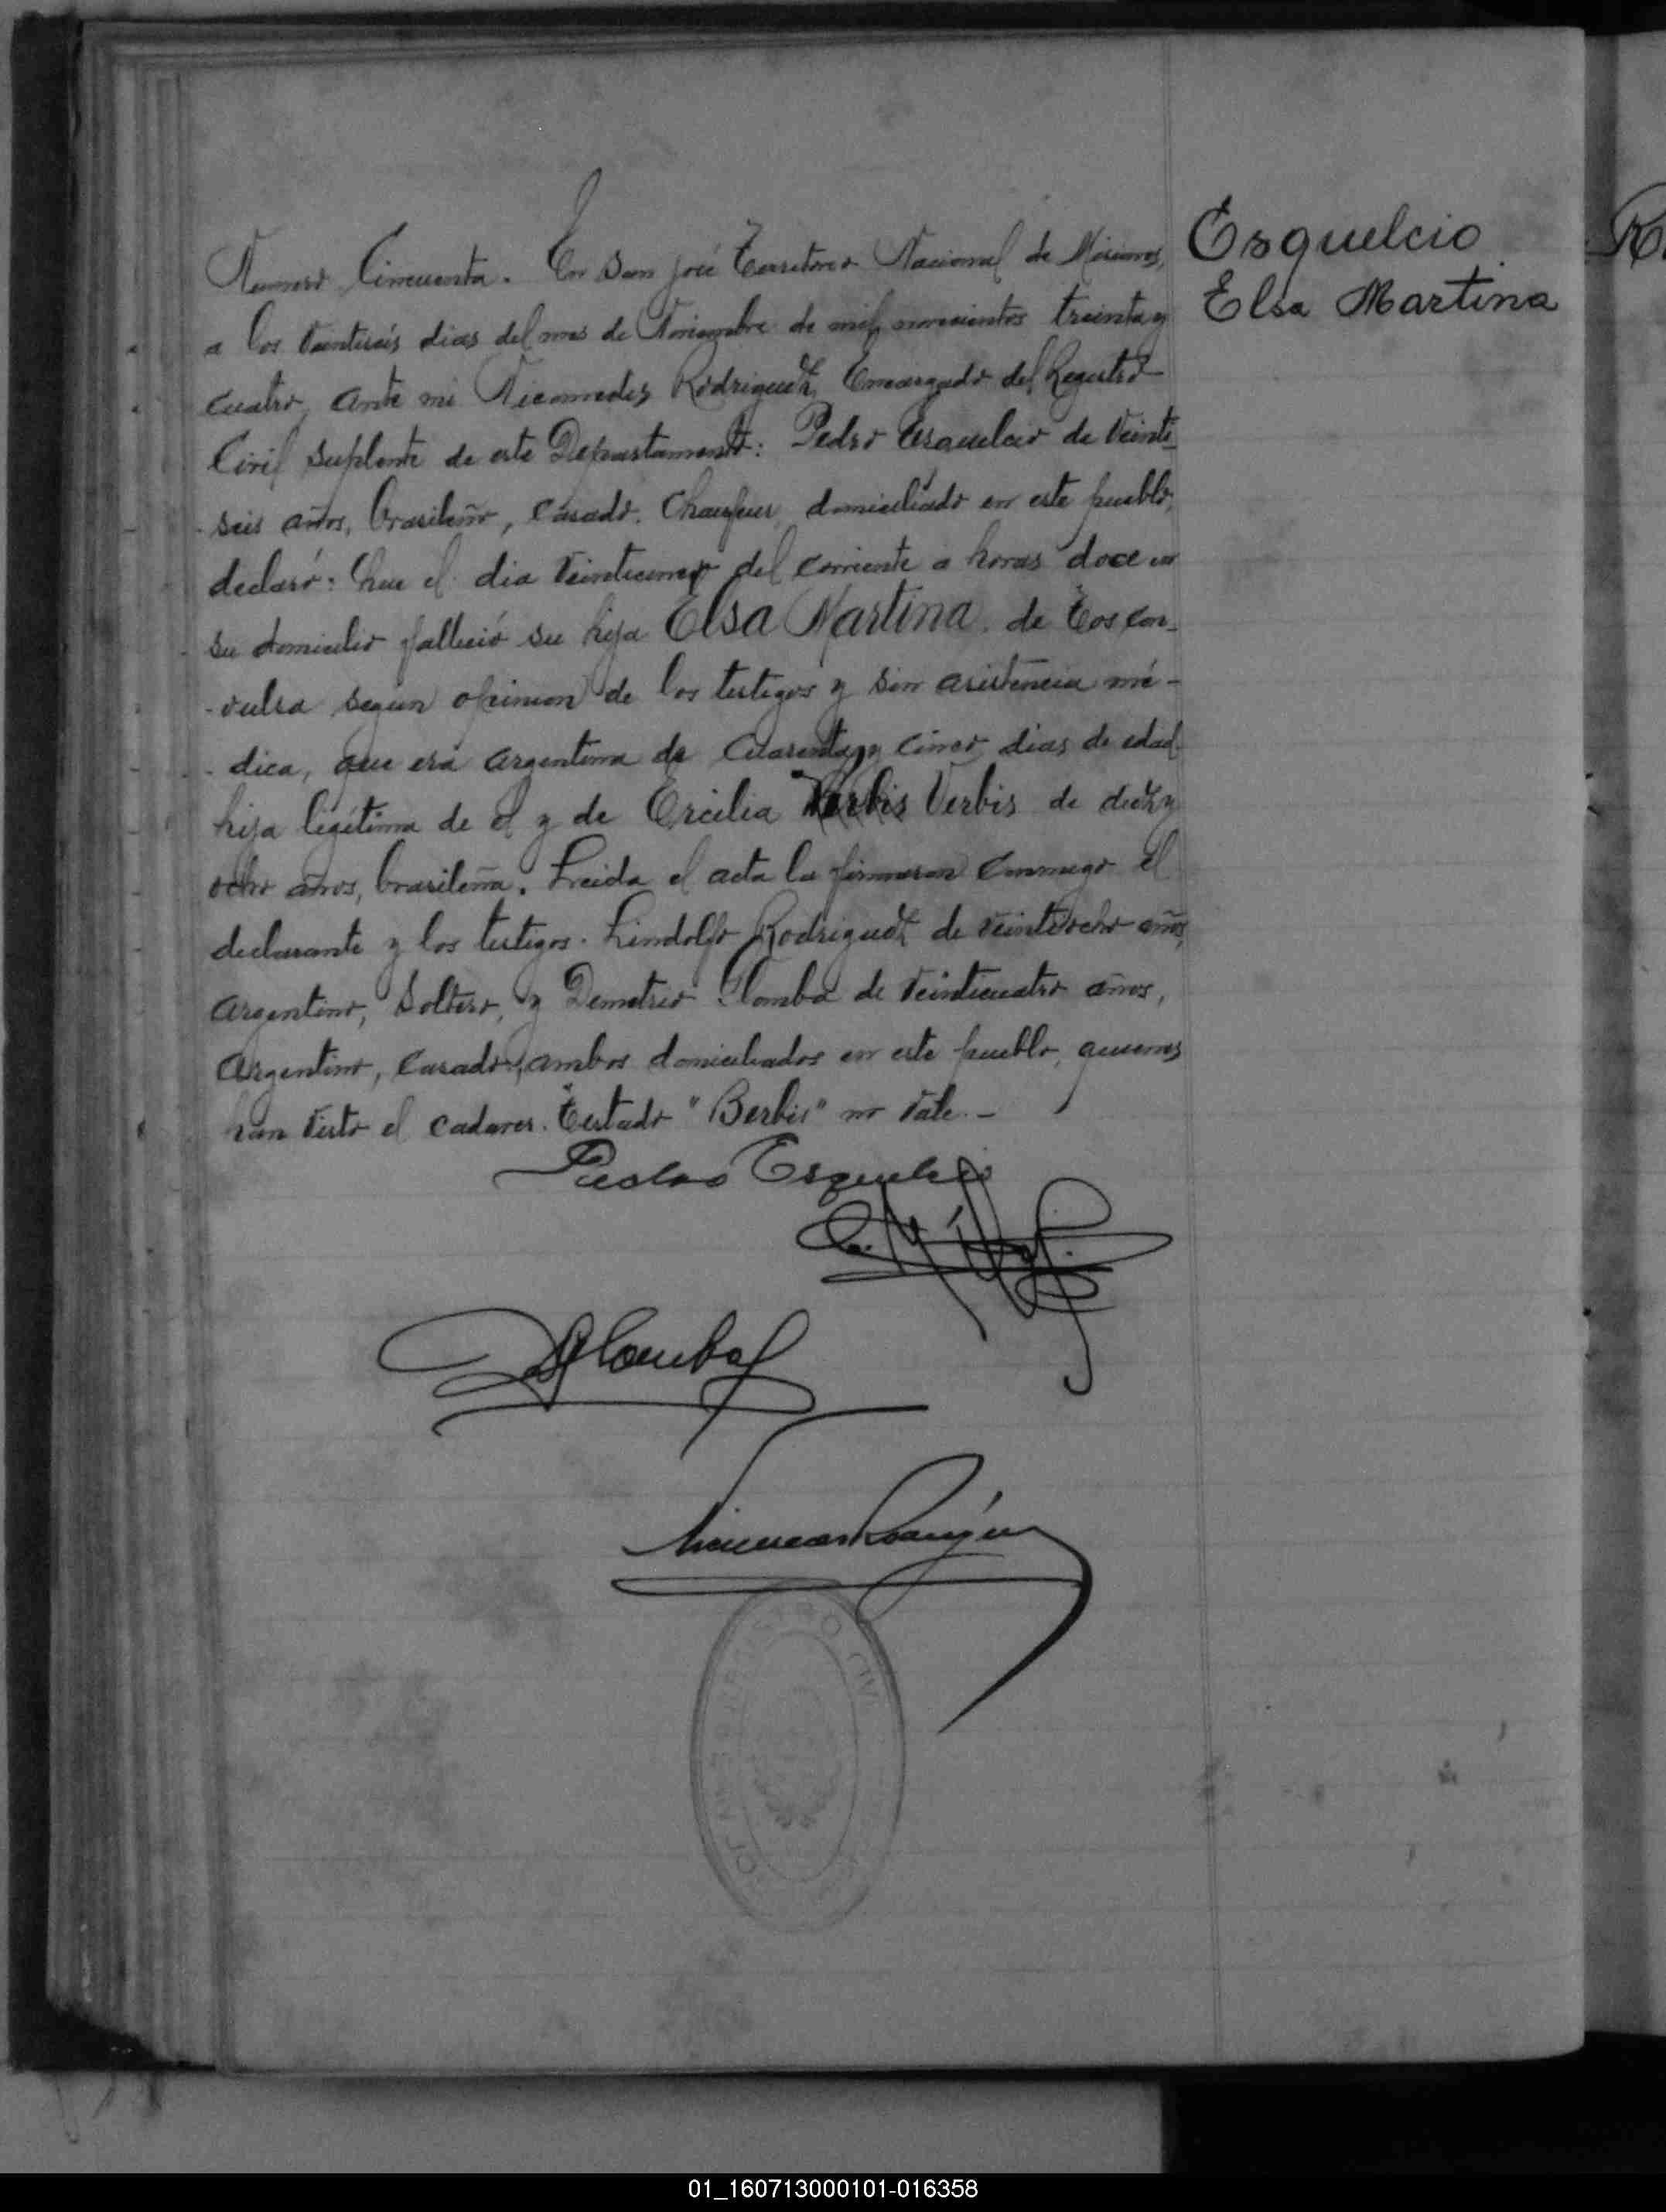 Esquelcio
Elsa Martina
Numero Cincuenta. En San José Territorio Nacional de Misiones,
a los veintiseis dias del mes de Noviembre de mil novecientos treinta y
cuatro, ante mi Nicomedes Rodriguez, Encargado del Registro
Civil Suplente de este Departamento: Pedro Esquelcio de veinti
seis años, brasileño, casado, Chaufeur, domiciliado en este pueblo,
declaró: Que el dia veinticinco del corriente a horas doce en
su domicilio falleció su hija Elsa Martina, de Tos con-
-vulsa segun opinion de los testigos y sin asistencia mé-
-dica, que era argentina de cuarenta y cinco dias de edad
hija legitima de el y de Ercilia Verbis de diez y
ocho años, brasileña. Leida el acta la firmaron conmigo el
declarante y los testigos. Lindolfo Rodriguez de veintiocho años,
argentino, Soltero, y Demetrio Glomba de veinticuatro años,
Argentino, Casado, ambos domiciliados en este pueblo, quienes
han visto el cadaver. Testado "Berbis" no vale.-
Pedro Esquelcio
DGlomba
REGISTRO CIVIL
01_160713000101-016358